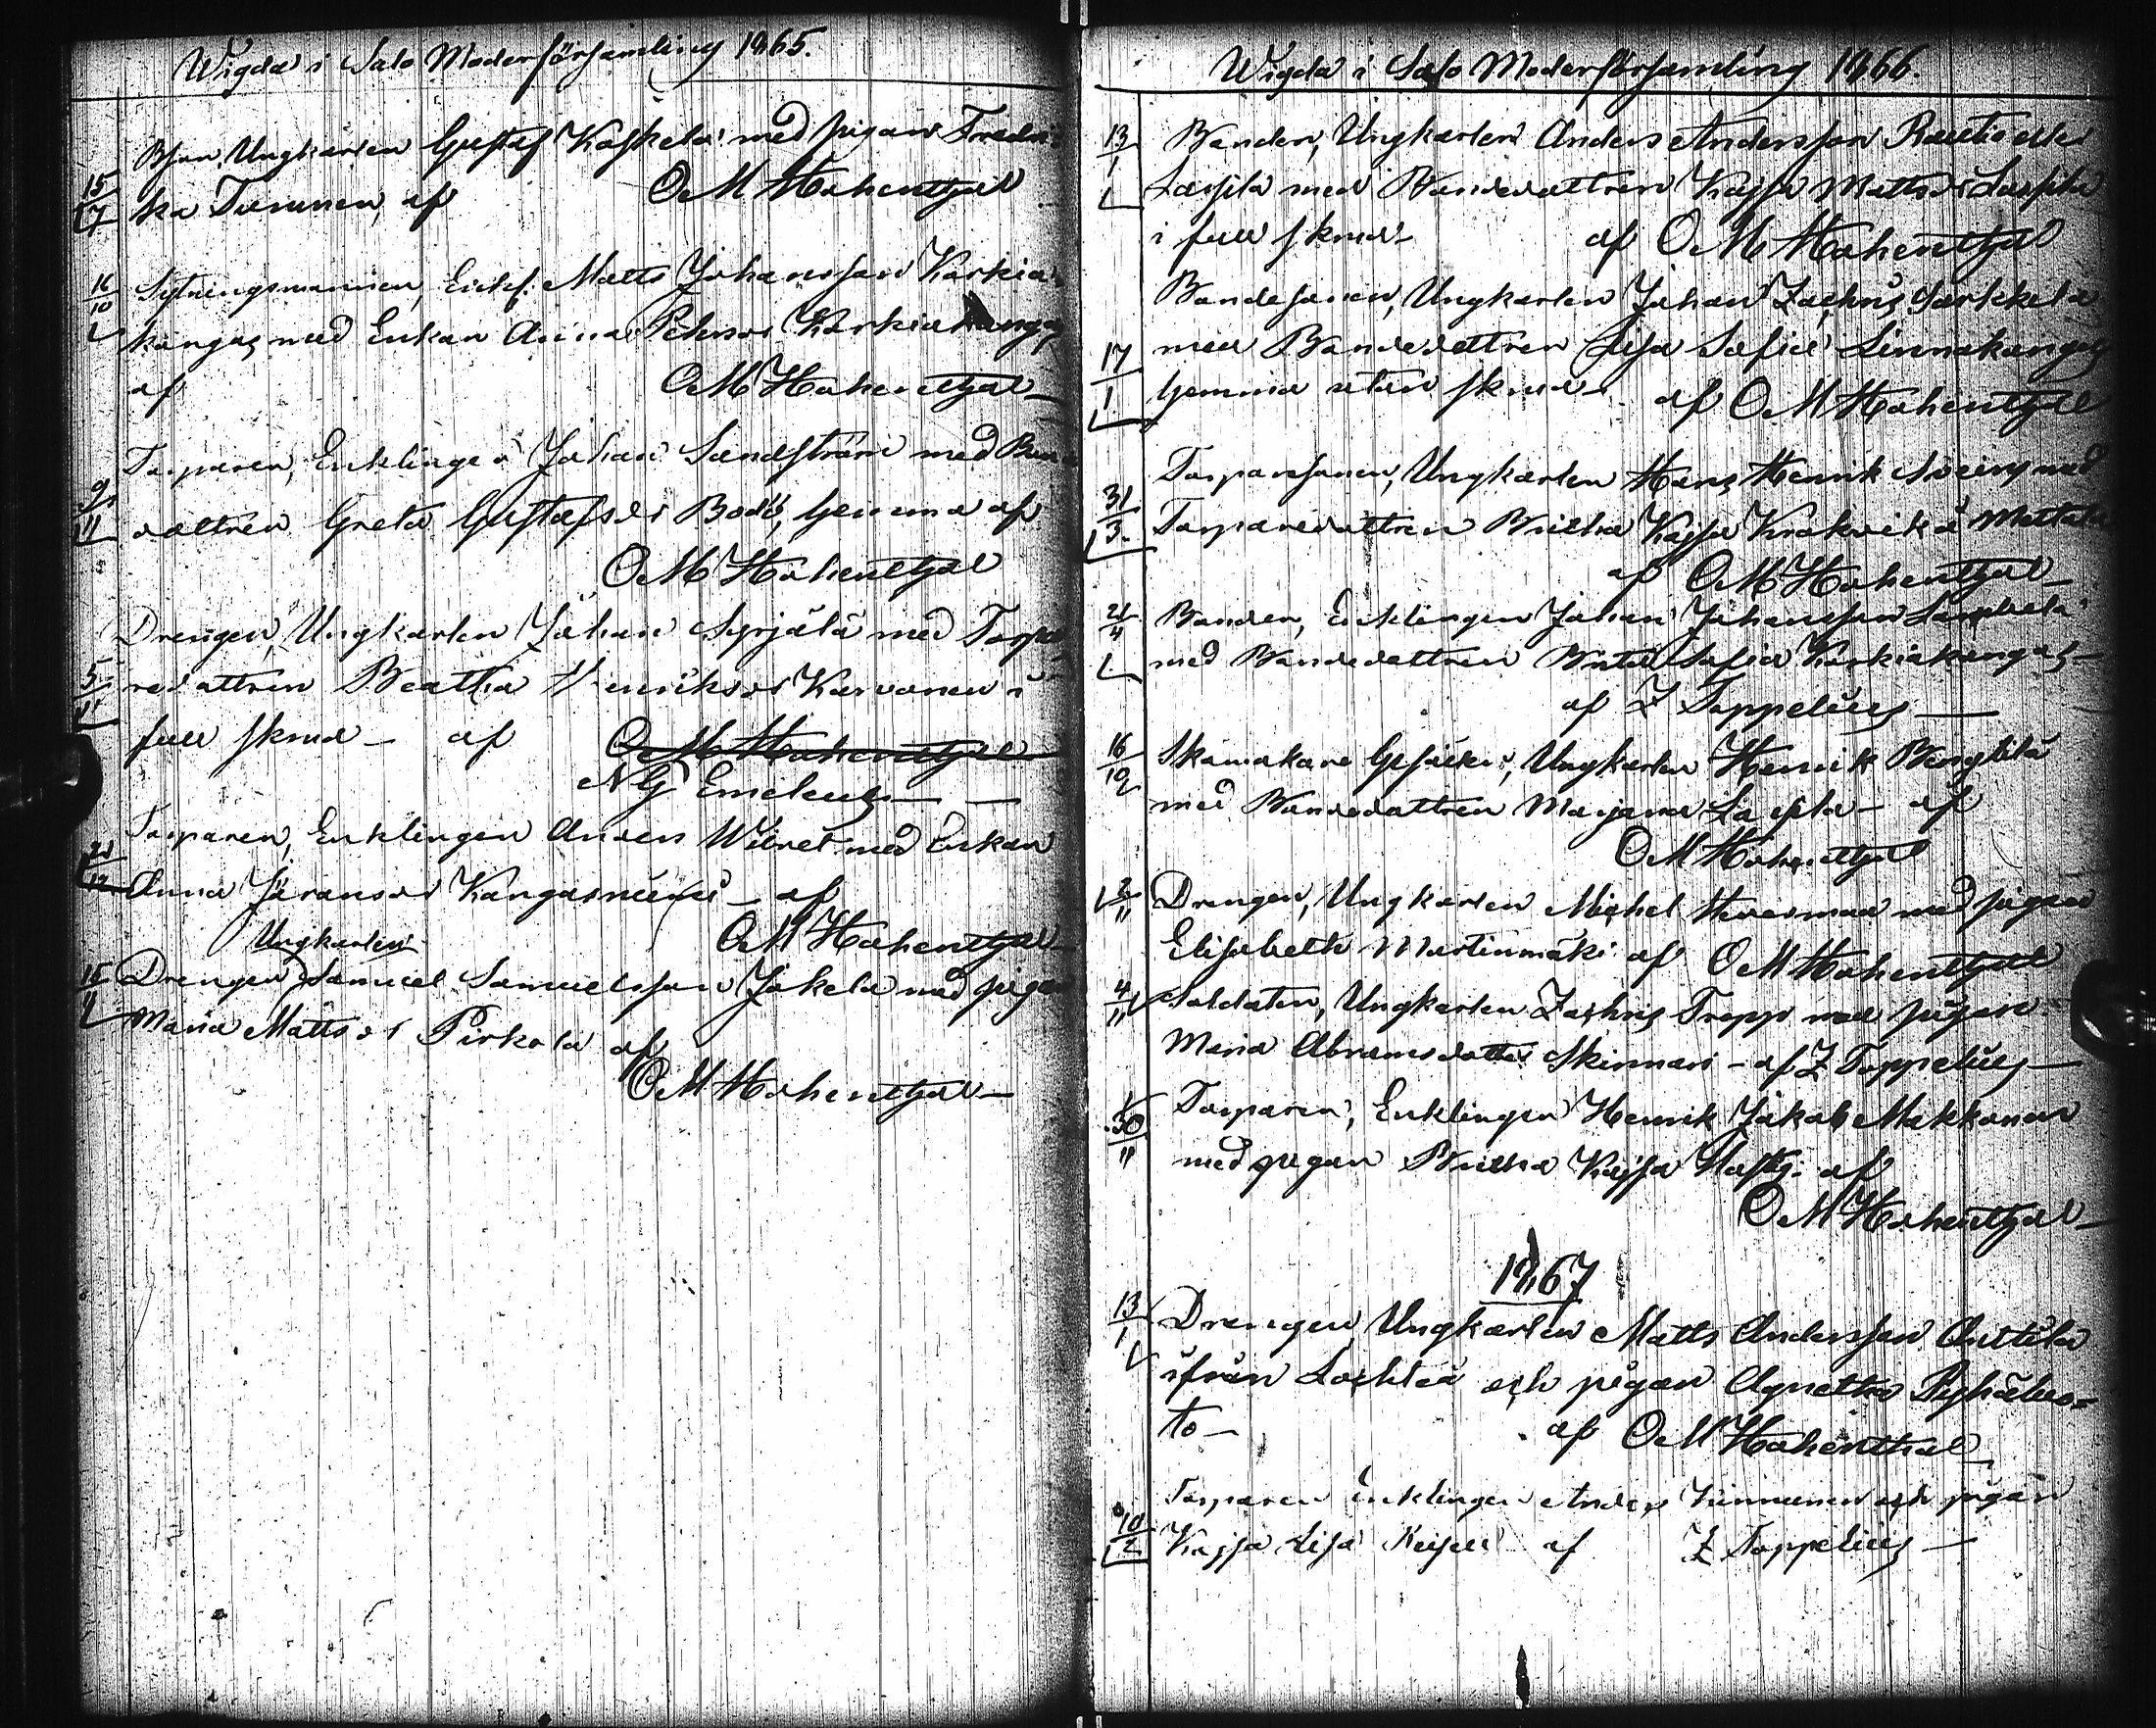 Wigda i Salo Moderförsamling 1865.
Bson, Ungkarlen Gustaf Koskela med pigan Fredri-
15/7 ka Turunen, af OM Hohenthal
16/10 Sytningsmannen, Enkl. Matts Johansson Karkia-
kangas med Enkan Anna Petersdr Karkiakangas
af OM Hohenthal
Torparen, Enklingen Johan Sandström med Bon-
9/11 dattren Greta Gustafsdr Bodö, hemma af
OM Hohenthal
Drengen, Ungkarlen Johan Syrjälä med Torpa-
5/11 redattren Beatha Henriksdr Karvonen i
full skrud – af OM Hohenthal
NG Emeleus
Torparen, Enklingen Anders Wibret med Enkan
Anna Göransdr Kangasniemi – af
Ungkarlen OM Hohenthal
Drengen Samuel Samuelsson Jokela med pigan
Maria Mattsdr Pirkola af
OM Hohenthal
Wigda i Salo Moderförsamling 1866.
13/1 Bonden, Ungkarlen Anders Andersson Rautio eller
Laspila med Bondedattren Kajsa Mattsdr Laspila
i full skrud – af OM Hohenthal
Bondesonen, Ungkarlen Johan Zachris Sarkkela
17/1 med Bondedattren Lisa Sofia Linnakangas
hemma utan skrud – af OM Hohenthal
Torparesonen, Ungkarlen Hans Henrik med
31/3 Torparedattren Britha Kajsa Krakvik å Mattala
af OM Hohenthal
21/4 Bonden, Enklingen Johan Johansson
med Bondedattren Brita Sofia Karkiakangas –
af Z Toppelius
16/10 Skomakare Gesällen, Ungkarlen Henrik Bengtilä
med Bondedattren Marjana Laspila – af
OM Hohenthal
2/11 Drengen, Ungkarlen Michel med pigan
Elisabeth Martinmäki af OM Hohenthal
4/11 Soldaten, Ungkarlen Zachris Trapp med pigan
Maria Abramsdotter Skinnari – af Z Toppelius
30/11 Torparen, Enklingen Henrik Jakob Makkonen
med pigan Britha Kajsa af
OM Hohenthal
1867
13/1 Drengen Ungkarlen Matts Andersson Anttila
ifrån Lochteå och pigan Agnetha Pyhäluo-
to – af OM Hohenthal
Torparen Enklingen Anders Kinnunen och pigan
10/2 Kajsa Lisa Keisu af Z Toppelius